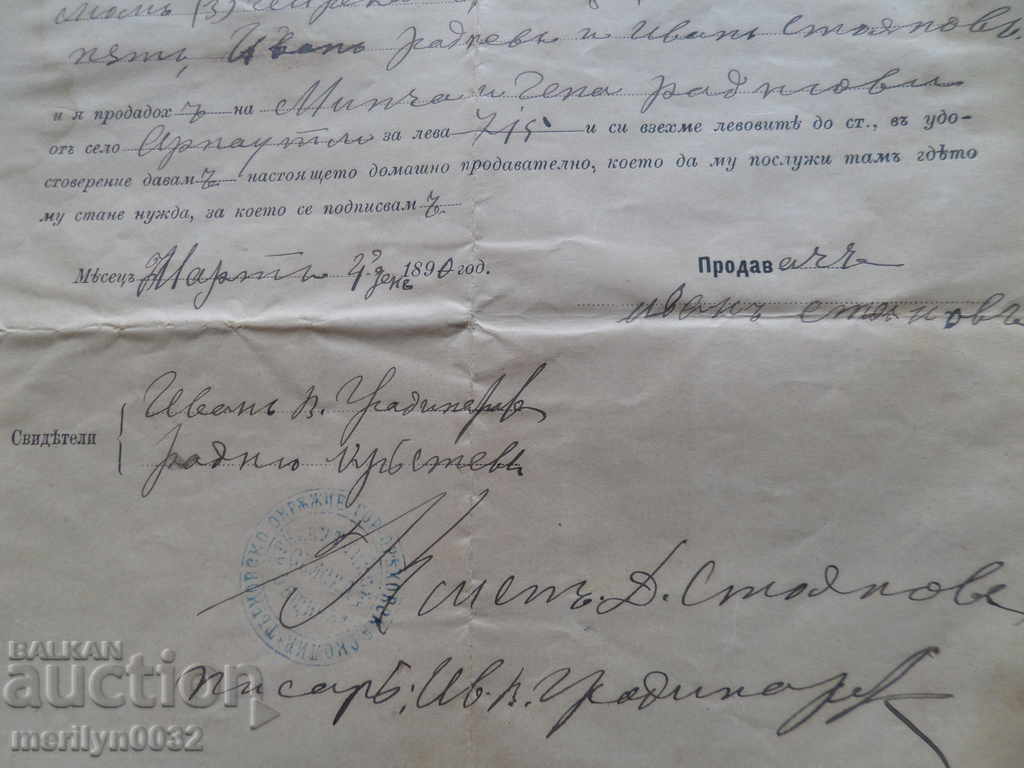 пять, Иванъ Радневъ и Иванъ Стояновъ
и я продадохъ на Минча и Гена Раднюви
отъ село Арнаутли за лева 715 и си взехме левовитѣ до ст., въ удо-
стоверение давамъ настоящето домашно продавателно, което да му послужи тамъ гдѣто
му стане нужда, за което се подписвамъ.
Мѣсецъ Мартъ 4 день 1890 год.
Продавачъ
Иванъ Стояновъ
Свидѣтели
Иванъ В. Градинаровъ
Радню Кръстевъ
ОКРѪЖИЕ
Кметъ: Д. Стояновъ
писаръ: Ив. В. Градинаровъ
BALKAN
auction
merilyn0032